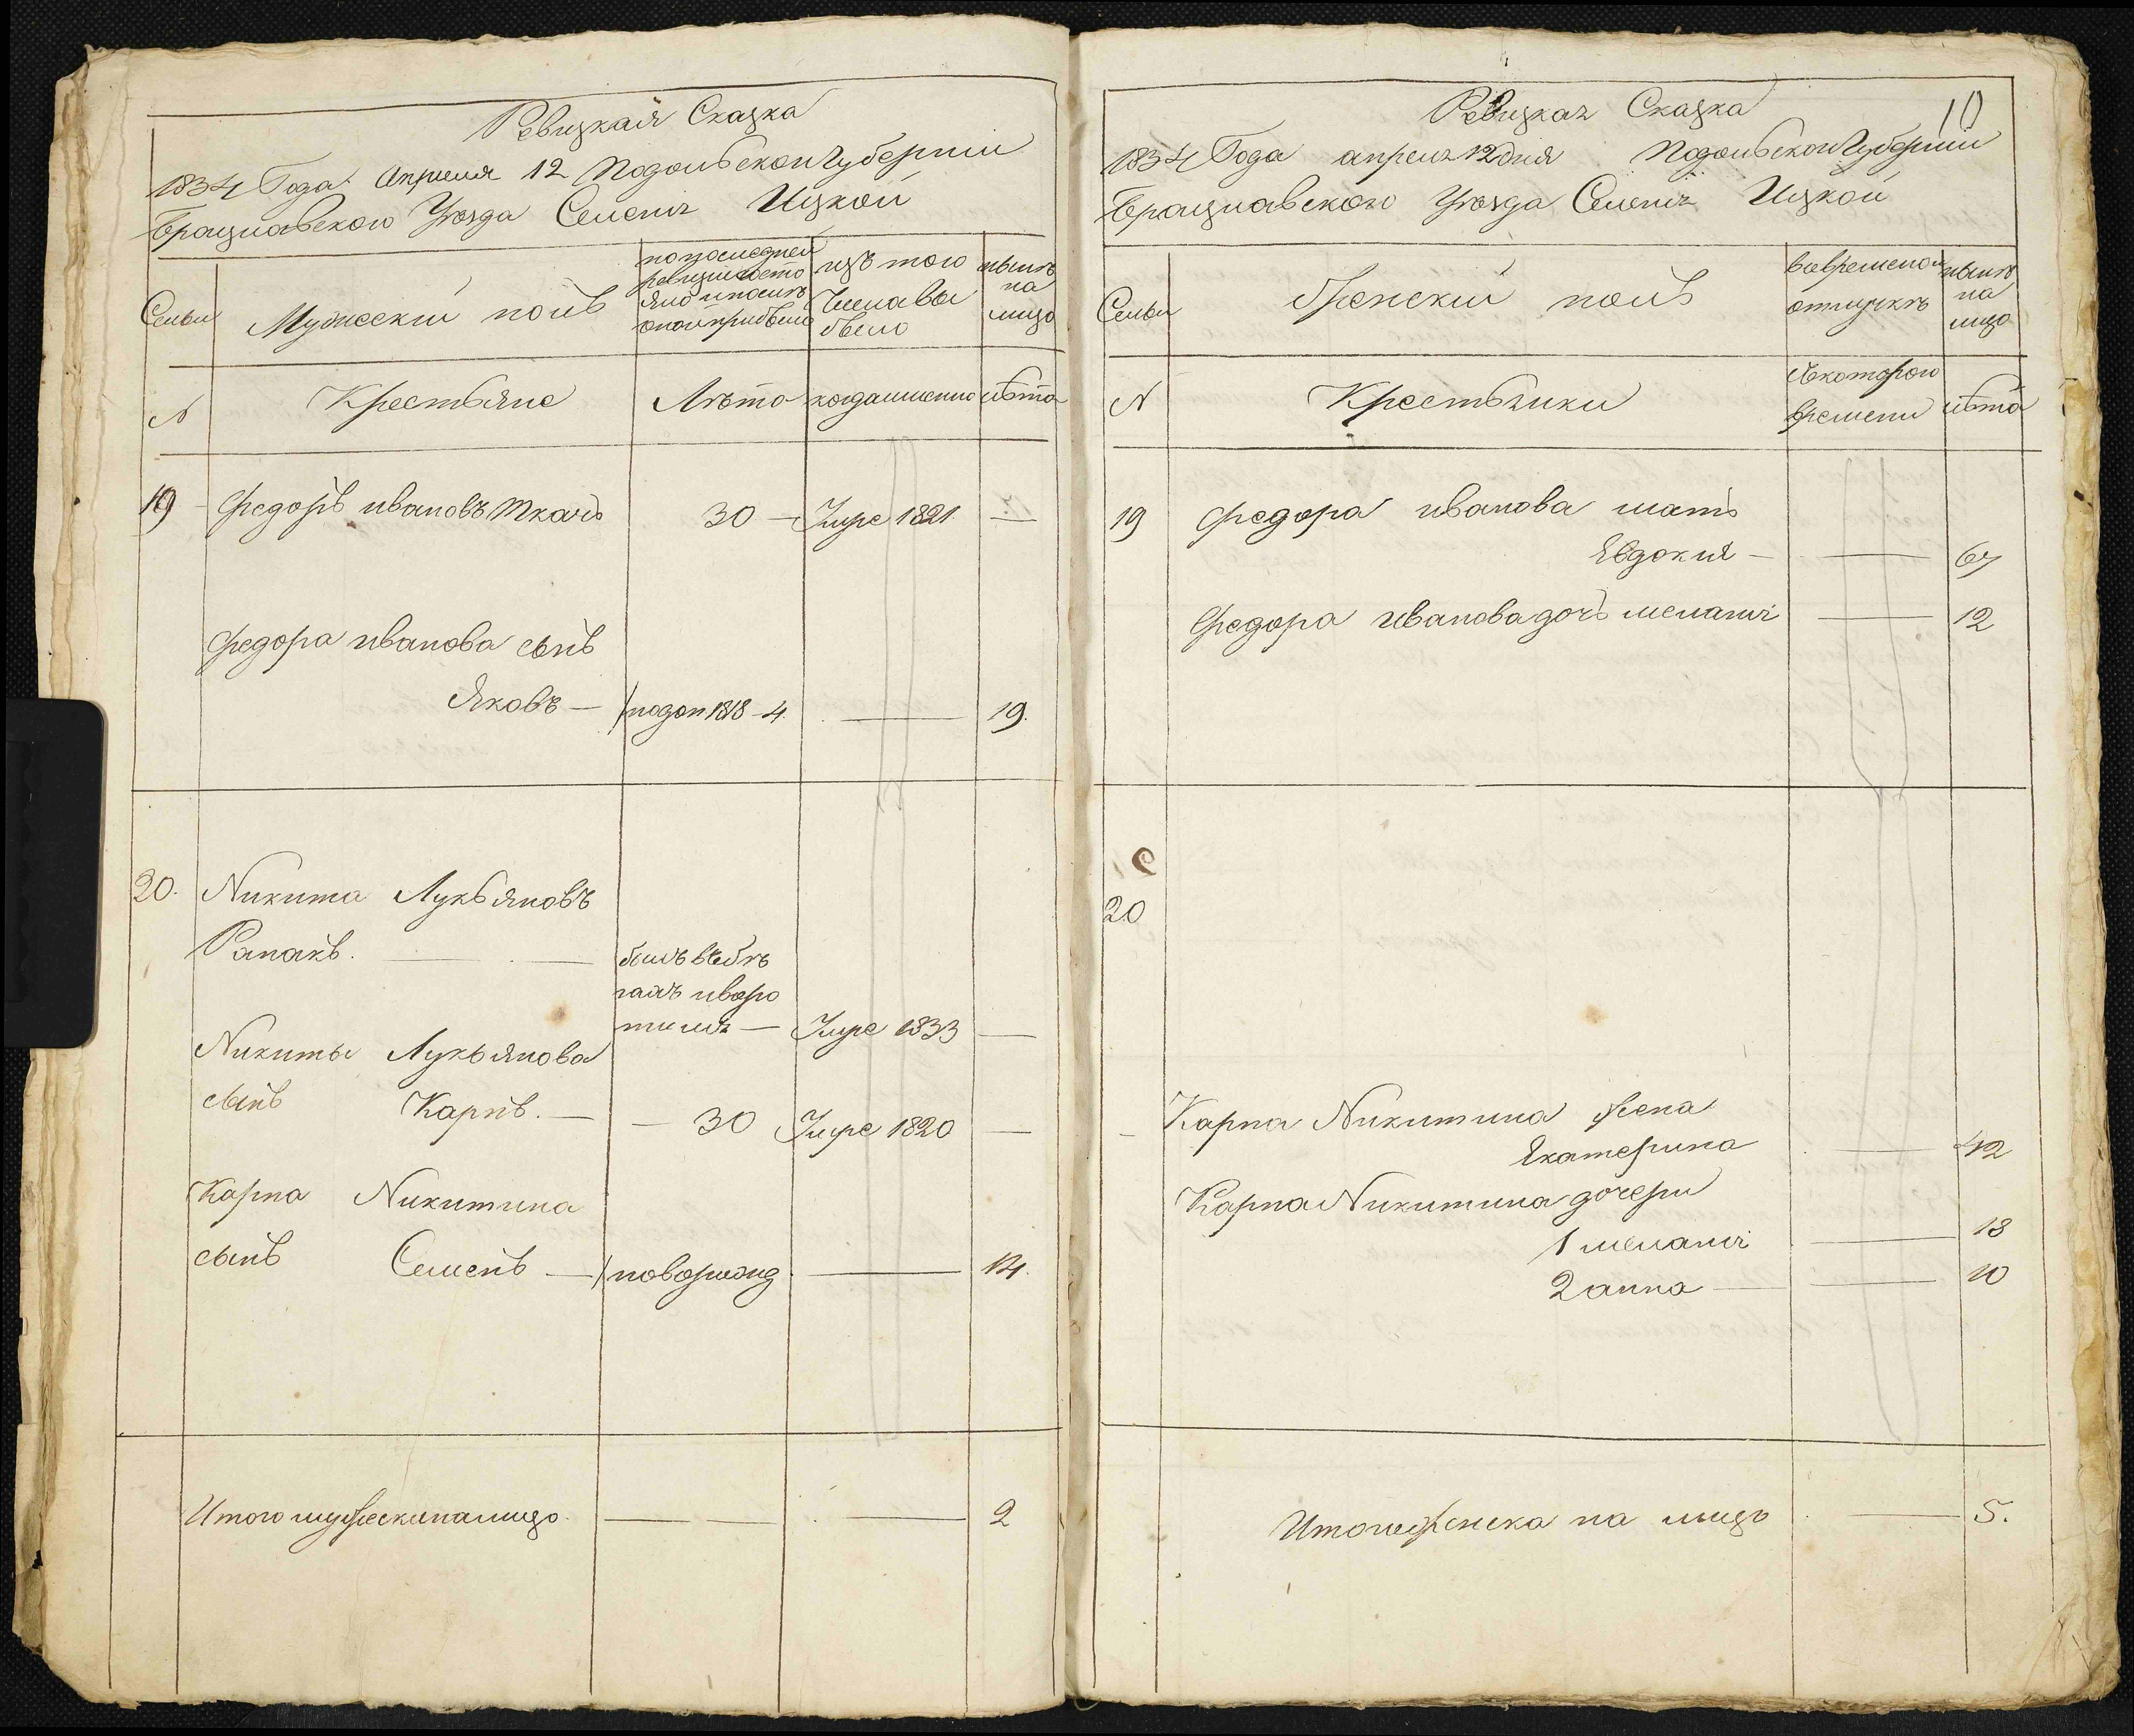 Ревизкая Сказка
1834 Года Апреля 12 Подольской Губернии
Брацлавского Уѣзда Селенія Ицкой
Семьи
Мужескій полъ
по последней
ревизіи
состояло и после
оной прибыло
изъ того
Числа вы
было
нынѣ
на
лицо
N
Крестьяне
Лѣта
когда именно
лѣта
19 Федоръ ивановъ Ткачъ 30 — Умре 1821. —
Федора иванова сынъ
Яковъ — подоп 1818 - 4. — 19.
20. Никита Лукьяновъ
Рапакъ. —
былъ въ бѣ
гахъ и воро
тился — Умре 1833 —
Никиты Лукьянова
сынъ Карпъ. — 30 Умре 1820 —
Карпа Никитина
сынъ Семенъ — новорожд. — 14.
Итого мужеска на лицо — 2
10
Ревизкая Сказка
1834 Года апреля 12 дня Подольской Губерніи
Брацлавского Уѣзда Селенія Ицкой
Семьи
Женскій полъ
во временной
отлучкѣ
нынѣ
на
лицо
N
Крестьянки
Съ котораго
времени
лѣта
19 Федора иванова мать
Явдокия — 67
Федора иванова дочь меланія — 12
20
Карпа Никитина жена
Екатерина — 42
Карпа Никитина дочери
1 меланія — 13
2 анна — 10
Итого женска на лицо — 5.